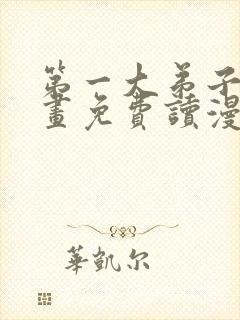 第一大弟子
畫免費讀漫
華凱尔